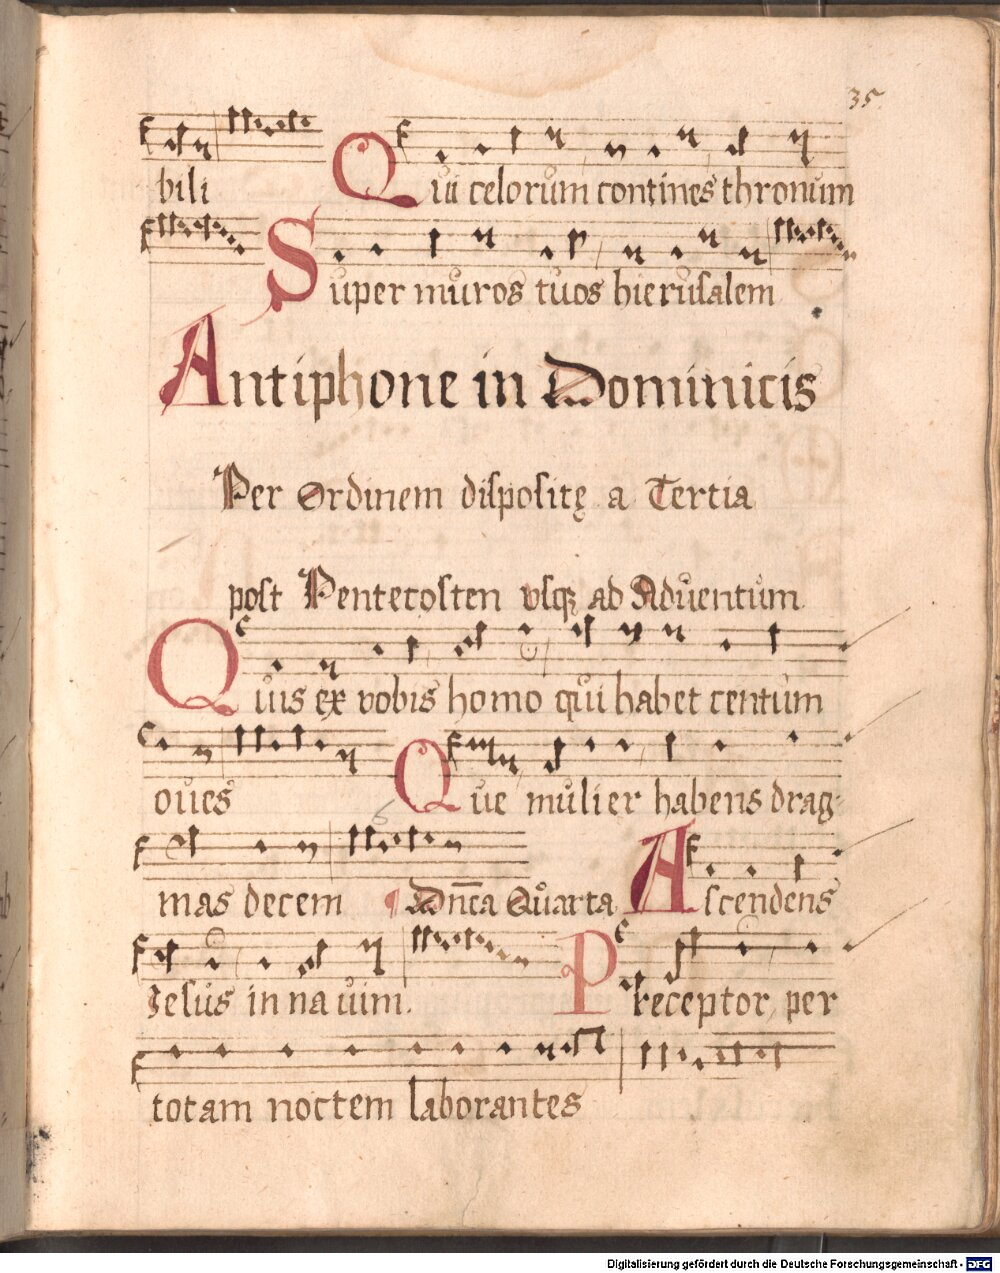 35
bili Qui celorum contines thronum
Super muros tuos hierusalem
Antiphone in Dominicis
Per Ordinem dispositę a Tertia
post Pentecosten usq; ad Aduentum
Quis ex vobis homo qui habet centum
oues Que mulier habens drag-
6
mas decem ¶ Dn̄ca Quarta Ascendens
Iesus in na uim. Preceptor, per
totam noctem laborantes
Digitalisierung gefördert durch die Deutsche Forschungsgemeinschaft - DFG